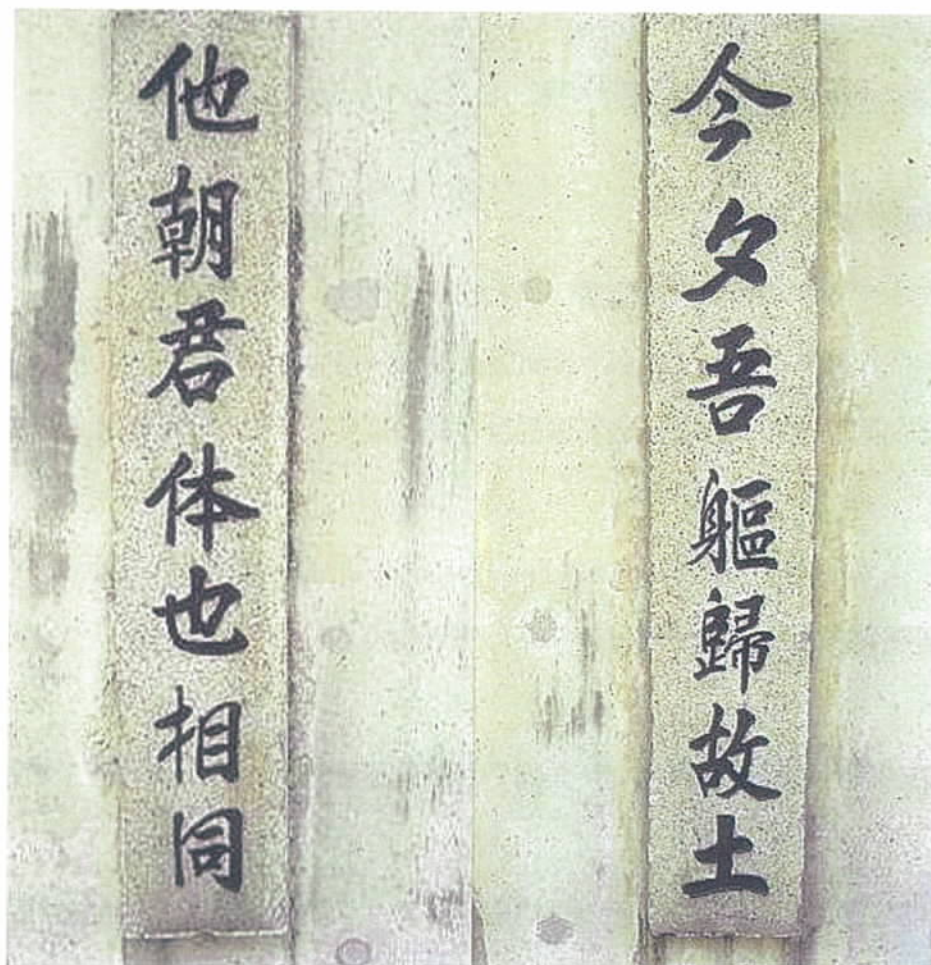 今夕吾軀歸故土
他朝君体也相同